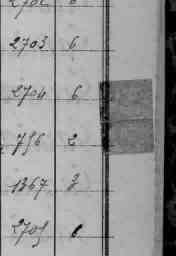 2702 6
2703 6
2704 6
796 2
1367 3
2705 6